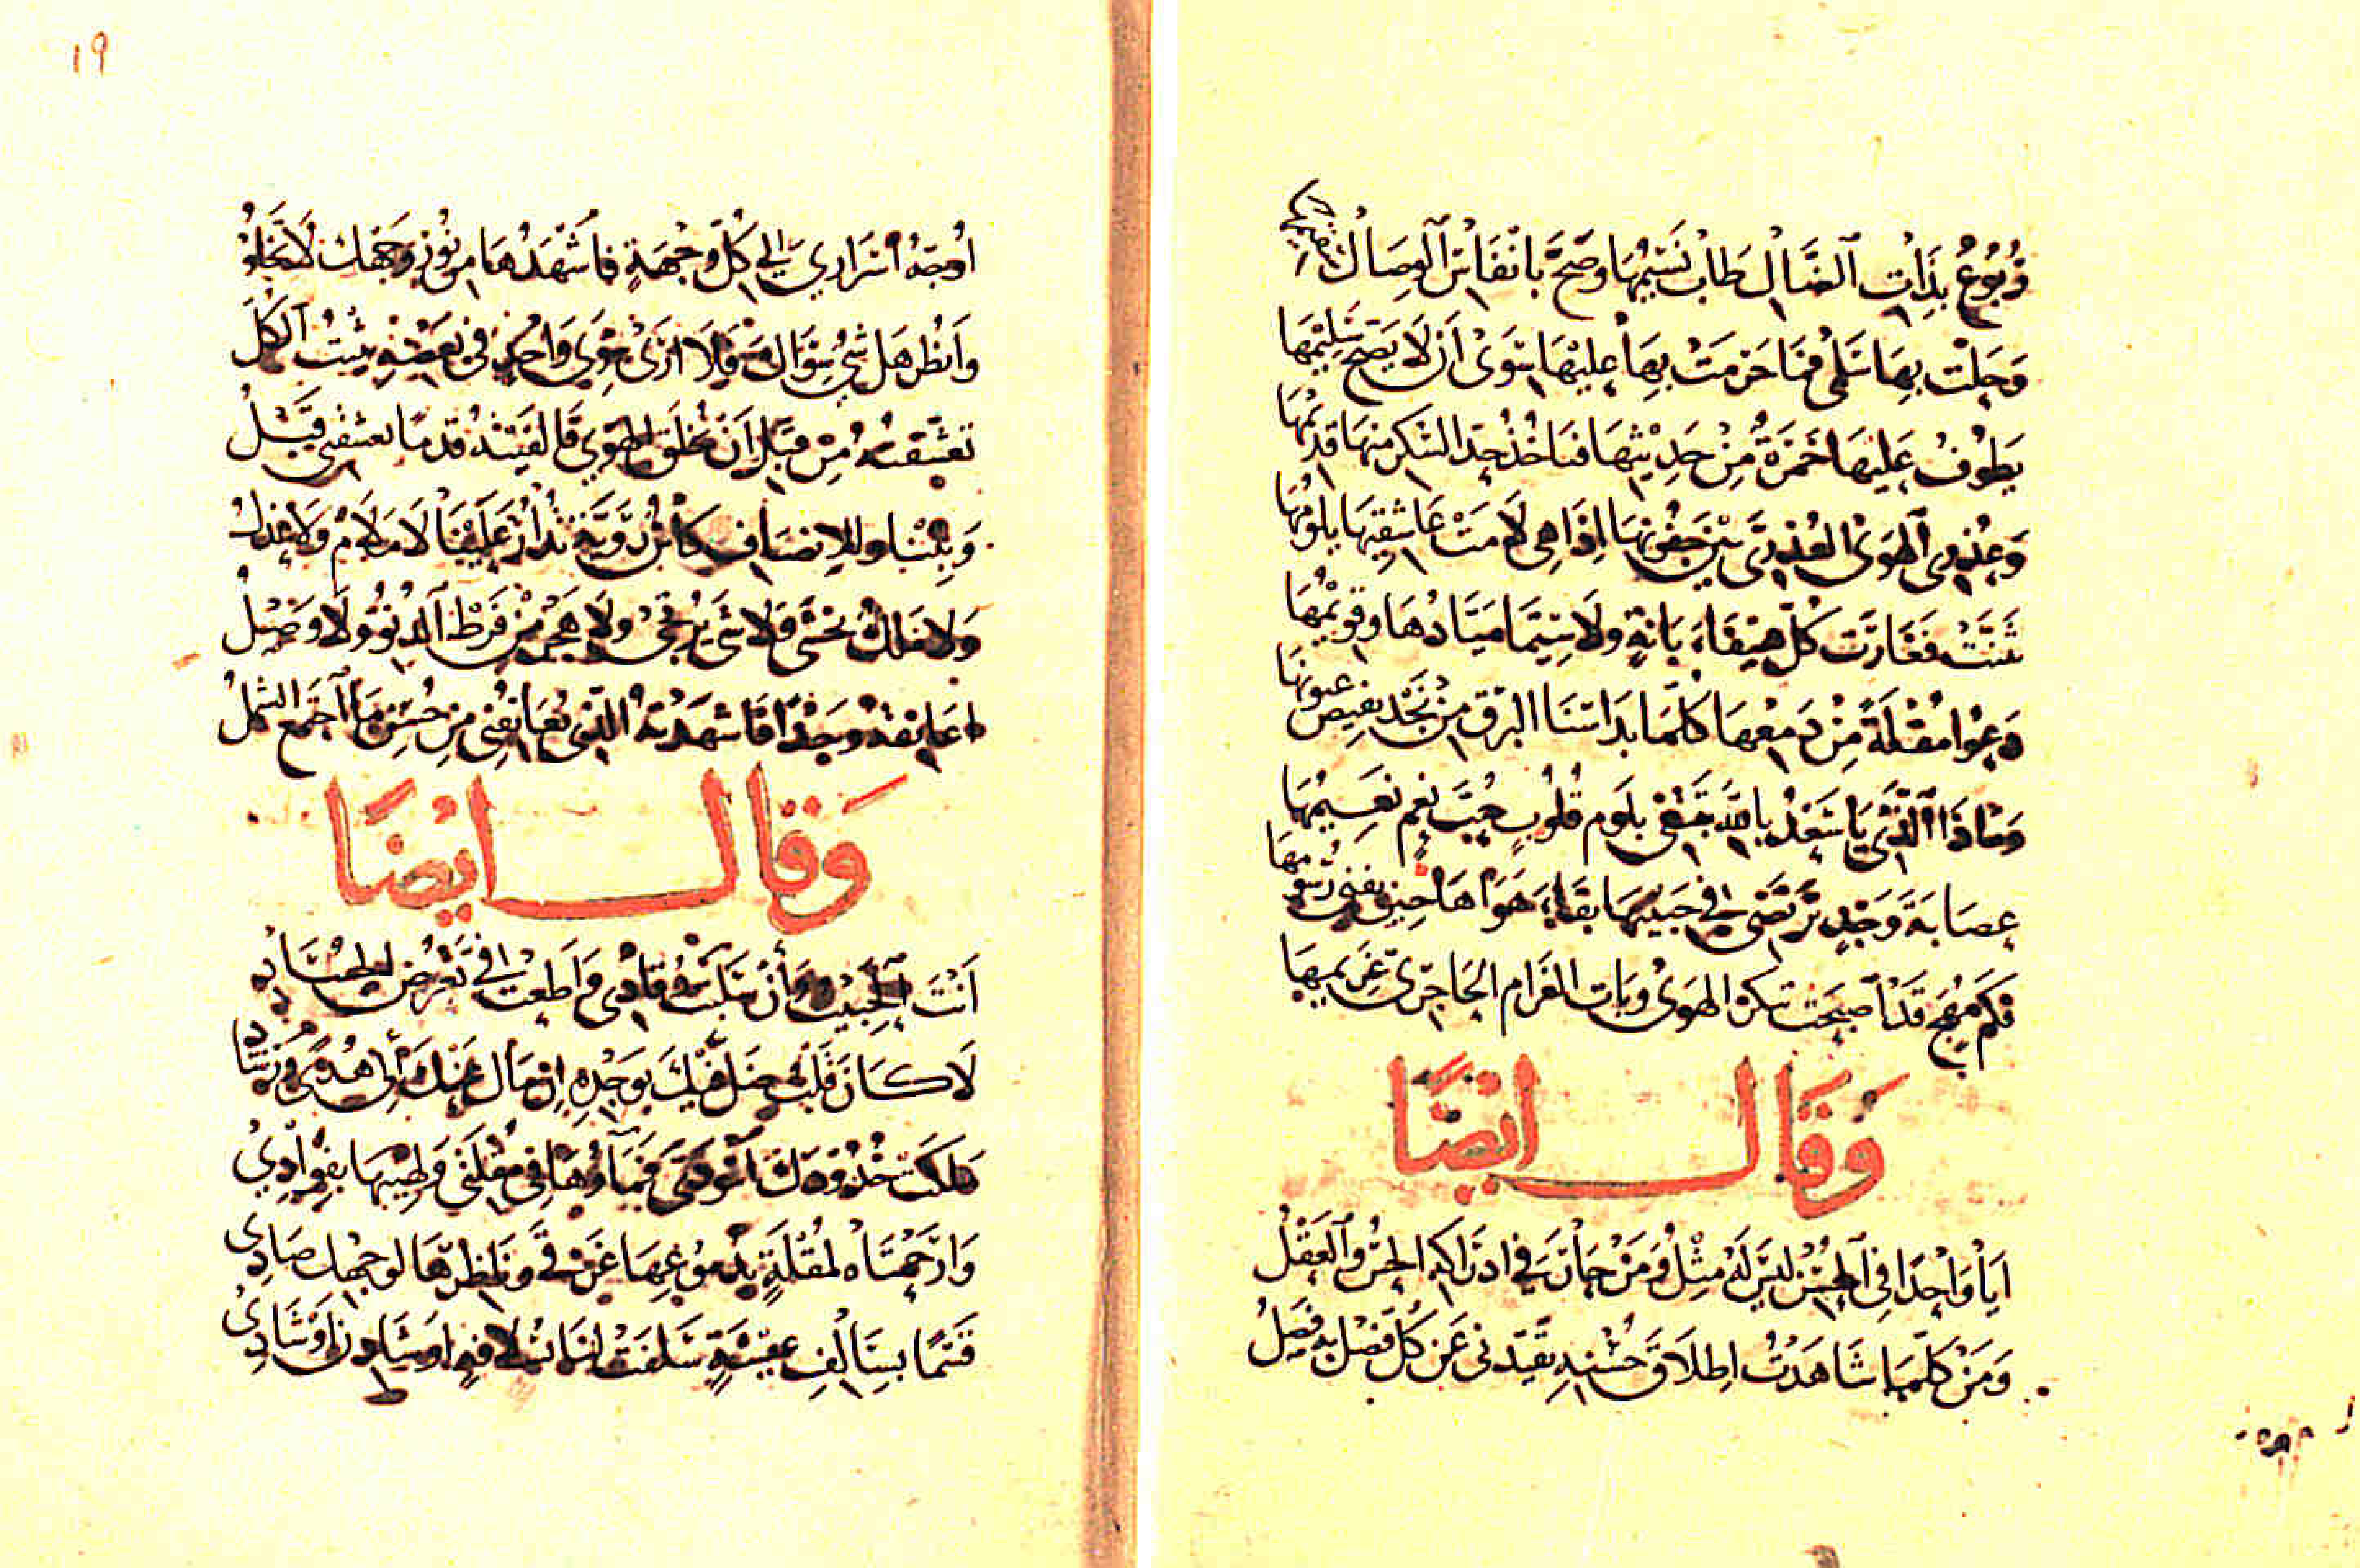 رُبُوعٌ بِذَاتِ الضَّالِ طَابَ نَسِيمُهَا وَصَحَّ بِأَنْفَاسِ الوِصَالِ
وَحَلَّتْ بِهَا سَلْمَى فَمَا حَرُمَتْ بِهَا عَلَيْهَا سِوَى أَنْ لَا يَصِحَّ سَلِيمُهَا
يَطُوفُ عَلَيْهَا خَمْرَةٌ مِنْ حَدِيثِهَا فَيَأخُذُ حَدَّ السُّكْرِ مِنْهَا قَدِيمُهَا
وَعُذْرِي الهَوَى العُذْرِيُّ بَيْنَ جُفُونِهَا إِذَا هِيَ لَامَتْ عَاشِقِيهَا يَلُومُهَا
تَثَنَّتْ فَغَارَتْ كُلُّ هَيْفَاءَ بَانَةٍ وَلَا سِيَّمَا مَيَّادُهَا وَقَوِيمُهَا
دَعُوا مُقْلَةً مِنْ دَمْعِهَا كُلَّمَا بَدَا سَنَا البَرْقِ مِنْ نَجْدٍ يَفِيضُ عيونها
وَمَاذَا الَّذِي يَا سَعْدُ بِاللهِ تَبْتَغِي بِلَوْمِ قُلُوبٍ حُبُّ نُعْمٍ نَعِيمُهَا
عِصَابَةُ وَجْدٍ تَرْتَضِي فِي حَبِيبِهَا بَقَاءَ هَوَاهَا حِينَ يَفْنَى رُسُومُهَا
فَكَمْ مُهَجٍ قَدْ أَصْبَحَتْ تَكْرَهُ الهَوَى وَبَاتَ الغَرَامُ الحَاجِرِيُّ غَرِيمَهَا
وَقَالَ أَيْضًا
أَيَا وَاحِدًا فِي الحُسْنِ لَيْسَ لَهُ مِثْلُ وَمَنْ حَارَ فِي ادْرَاكِهِ الحِسُّ وَالعَقْلُ
وَمَنْ كُلَّمَا شَاهَدْتُ اطْلَاقَ حُسْنِهِ تَقَيَّدَنِي عَنْ كُلِّ فَضْلٍ بِهِ فَضْلُ
١٩
أُوَجِّهُ أَسْرَارِي إِلَى كُلِّ وَجْهَةٍ فَأَشْهَدُهَا مِنْ نُورِ وَجْهِكَ لَا تَخْلُو
وَأَنْظُرُ هَلْ شَيْءٌ سِوَاكَ فَلَا أَرَى سِوَى وَاحِدٍ فِي بَعْضِهِ يَثْبُتُ الكُلُّ
تَعَشَّقْتُهُ مِنْ قَبْلِ أَنْ يُخْلَقَ الهَوَى فَأَلْفَيْتُهُ قِدْمًا تَعَشَّقَنِي قَبْلُ
وَبِتْنَا وَلِلْإِنْصَافِ كَأْسٌ رَوِيَّةٌ تُدَارُ عَلَيْنَا لَا مَلَامٌ وَلَا عَذْلُ
وَلَا مَلِكٌ يُخْشَى وَلَا شَيْ يُرْتَجَى وَلَا هَجْرَ مِنْ فَرْطِ الدُّنُوِّ وَلَا وَصْلُ
أُعَانِقُهُ وَجْدًا فَأَشْهَدُنِّهُ الَّذِي يُعَانِقُنِي مِنْ حُسْنِ مَا اجْتَمَعَ الشَّمْلُ
وَقَالَ أَيْضًا
أَنْتَ الحَبِيبُ وَأَنْ سَلَبْتَ رُقَادِي وَأَطَعْتَ فِيَّ تَعَرُّضَ الحُسَّادِ
لَا كَانَ قَلْبٌ ضَلَّ فِيكَ بِوَجْدِهِ إِنْ مَالَ عَنْكَ إِلَى هُدًى وَرَشَادِ
مَلَكَتْ خُدُودُكَ مُهْجَتِي فَمَاؤُهَا فِي مُقْلَتِي وَلَهِيبُهَا بِفُؤَادِي
وَارَحْمَتَاهُ لِمُقْلَةٍ بِدُمُوعِهَا غَرْقَى وَنَاظِرُهَا لِوَجْهِكَ صَادِي
قَسَمًا بِسَالِفِ عِيشَةٍ سَلَفَتْ لَنَا بِسُلَافَةٍ أَوْ شَادِنٍ أَوْ شَادِي